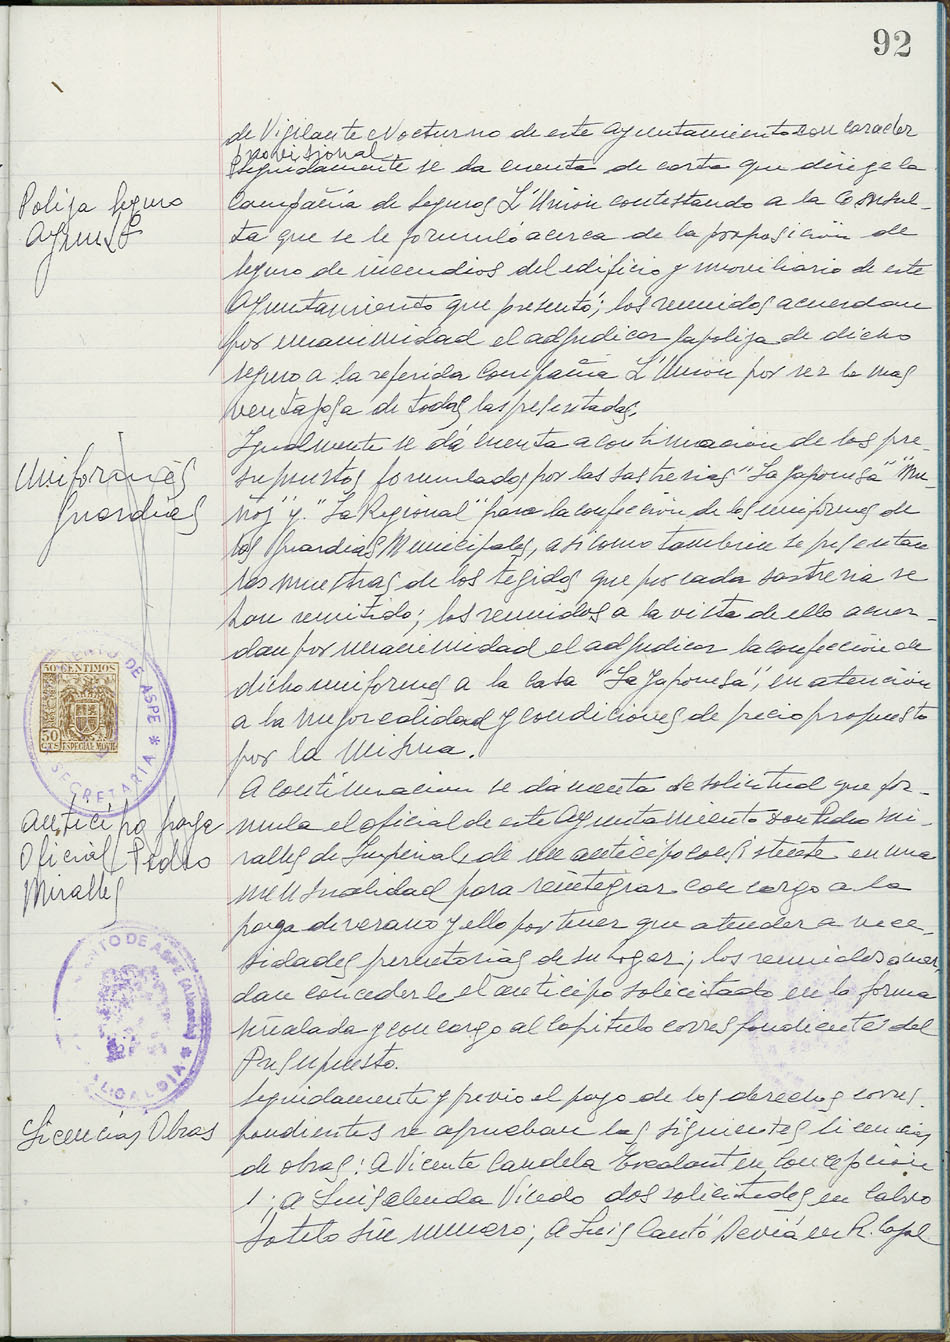 92
de Vigilante Nocturno de este Ayuntamiento con caracter
provisional
Seguidamente se da cuenta de carta que dirige la
Poliza Seguro
Ayunt
Compañia de Seguros L'Union contestando a la consul-
ta que se le formuló acerca de la proposición de
seguro de incendios del edificio y moviliario de este
Ayuntamiento que presentó; los reunidos acuerdan
por unanimidad el adjudicar la poliza de dicho
seguro a la referida Compañia L'Union por ser la mas
ventajosa de todas las presentadas.
Igualmente se dá cuenta a continuación de los pre-
Uniformes
Guardias
supuestos formulados por las sastrerias "La Japonesa" "Mu-
ñoz" y "La Regional" para la confección de los uniformes de
los Guardias Municipales, asi como tambien se presentan
las muestras de los tegidos que por cada sastreria se
han remitido; los reunidos a la vista de ello acuer-
dan por unanimidad el adjudicar la confección de
dicho uniformes a la casa "La Japonesa", en atención
a la mejor calidad y condiciones de precio propuesto
por la misma.
50 CENTIMOS
50
CTS ESPECIAL MOVIL
ENTO DE ASPE * SECRETARIA *
A continuacion se da cuenta de solicitud que for-
Anticipo paga
Oficial Pedro
Miralles
mula el oficial de este Ayuntamiento don Pedro Mi-
ralles de Imperial de un anticipo consistente en una
mensualidad para reintegrar con cargo a la
paga de verano y ello por tener que atender a nece-
sidades perentorias de su hogar; los reunidos acuer-
dan concederle el anticipo solicitado en la forma
señalada y con cargo al Capitulo correspondiente del
Presupuesto.
NTO DE ASPE (Alicante) * ALCALDIA *
Seguidamente y previo el pago de los derechos corres-
Licencias Obras
pondientes se aprueban las siguientes licencias
de obras: A Vicente Candela Escalant en Concepcion
1; a Luis Cerda Vicedo dos solicitudes en Calvo
Sotelo sin numero; A Luis Cantó Deviá en R. Cajal